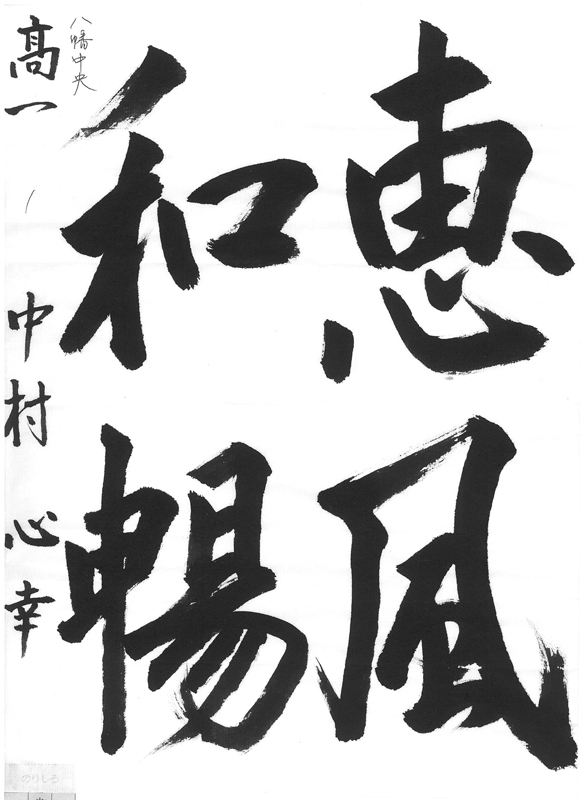 恵風
和暢
八幡中央
高一 中村心幸
のりしろ